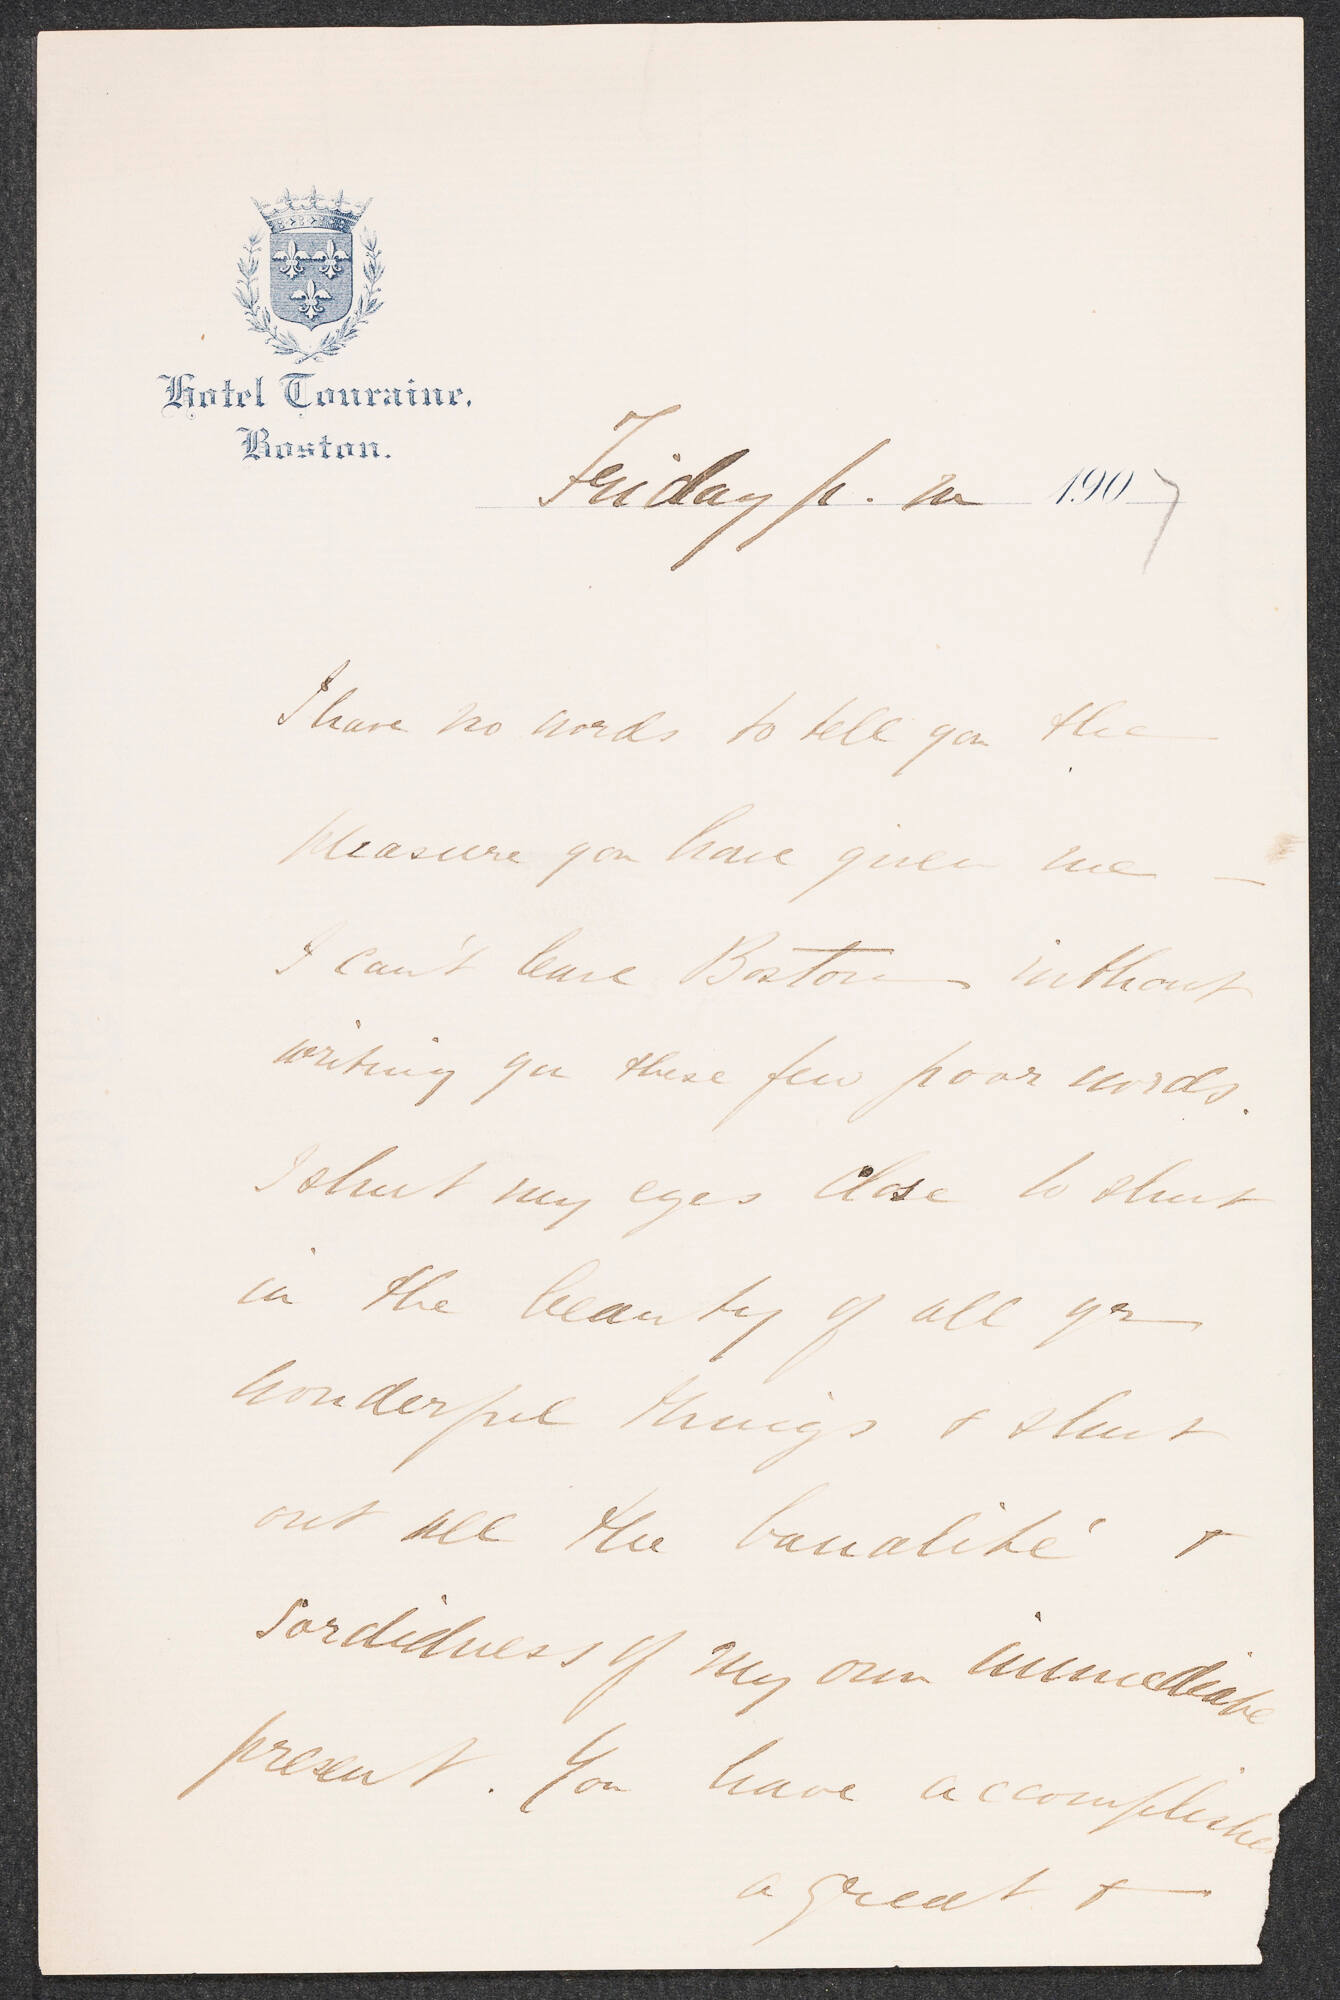 Hotel Touraine.
Boston.
Friday p. m 1907
I have no words to tell you the
pleasure you have given me —
I can't leave Boston without
writing you these few poor words.
I shut my eyes close to shut
in the beauty of all yr
wonderful things & shut
out all the banalité &
sordidness of my own immediate
present. You have accomplished
a great &